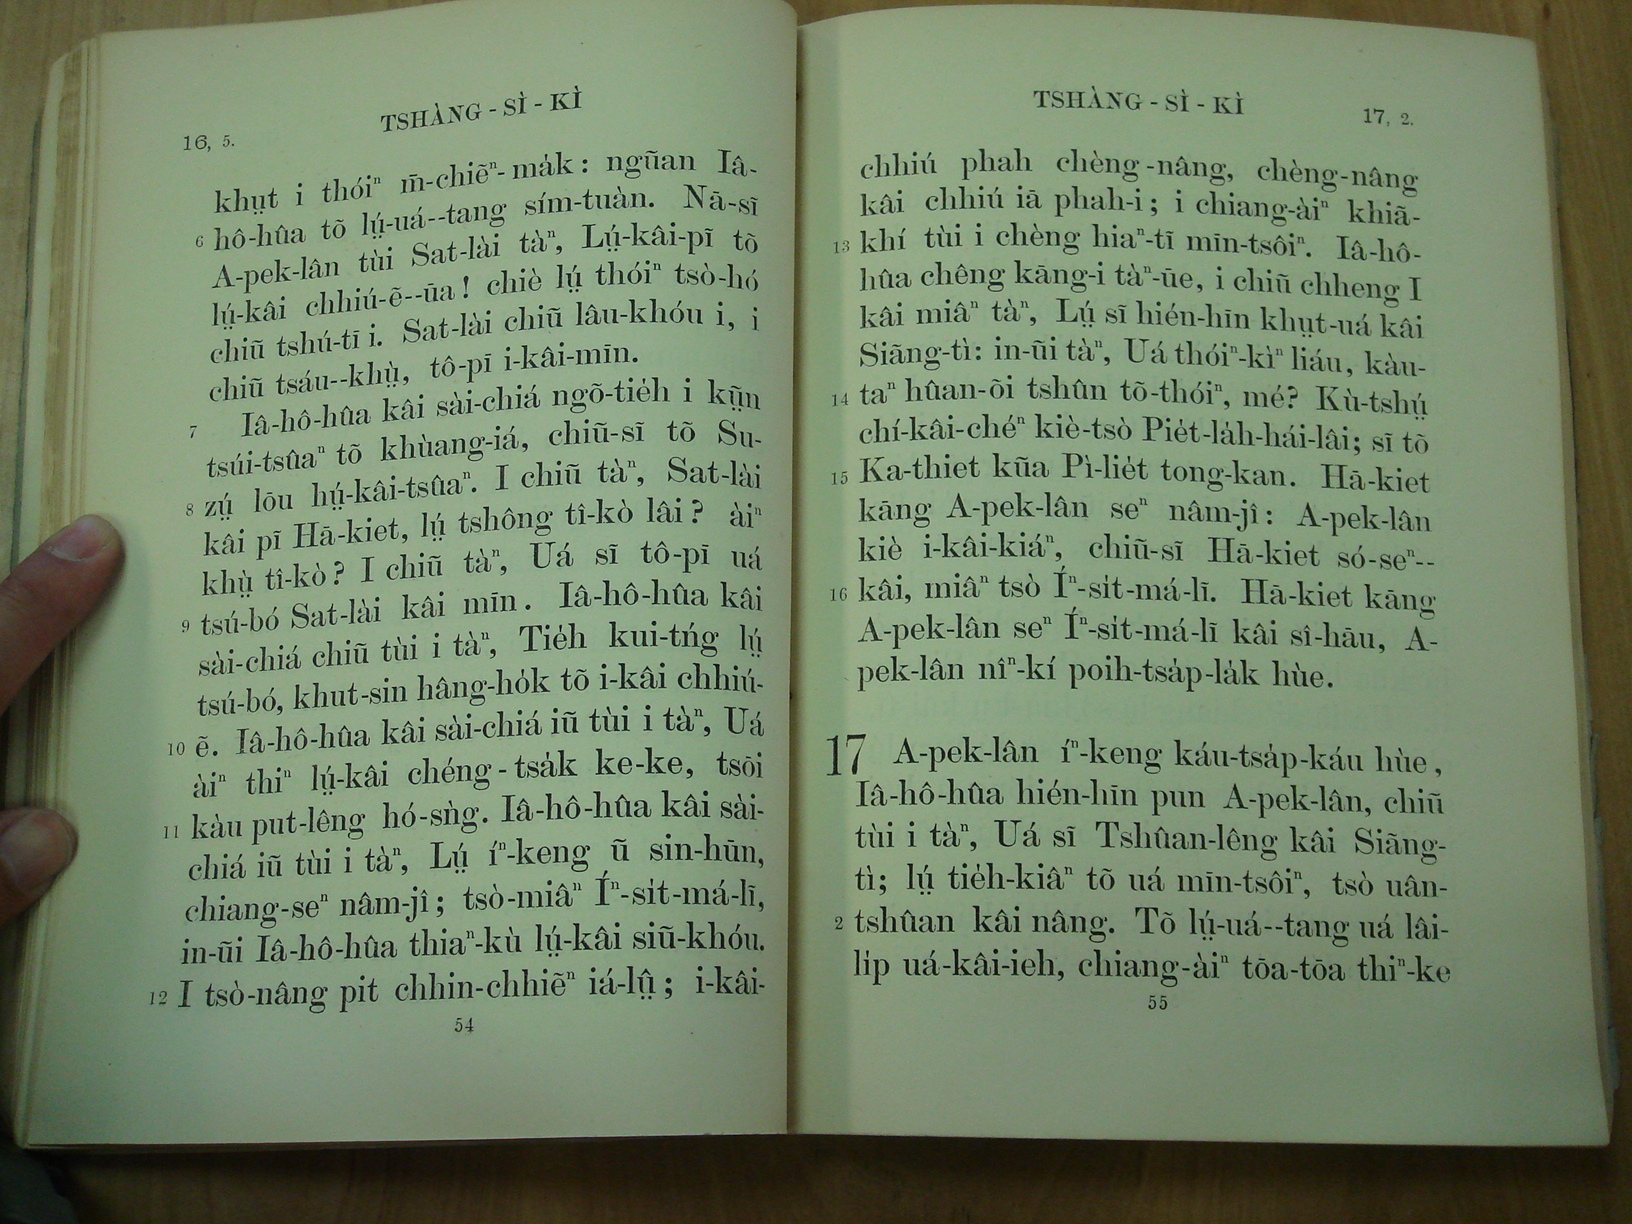 16, 5.
TSHÀNG - SÌ - KÌ
khṳt i thóiⁿ m̄-chiẽⁿ-ma̍k: ngũan Iâ-
6 hô-hûa tõ lṳ́-uá--tang sím-tuàn. Nā-sī
A-pek-lân tùi Sat-lài tàⁿ, Lṳ́-kâi-pī tõ
lṳ́-kâi chhiú-ẽ--ūa! chiè lṳ́ thóiⁿ tsò-hó
chiũ tshú-tī i. Sat-lài chiũ lâu-khóu i, i
chiũ tsáu--khṳ̀, tô-pī i-kâi-mīn.
7 Iâ-hô-hûa kâi sài-chiá ngõ-tie̍h i kṳ̃n
tsúi-tsûaⁿ tõ khùang-iá, chiũ-sī tõ Su-
8 zṳ́ lōu hṳ́-kâi-tsûaⁿ. I chiũ tàⁿ, Sat-lài
kâi pī Hā-kiet, lṳ́ tshông tî-kò lâi? àiⁿ
khṳ̀ tî-kò? I chiũ tàⁿ, Uá sī tô-pī uá
9 tsú-bó Sat-lài kâi mīn. Iâ-hô-hûa kâi
sài-chiá chiũ tùi i tàⁿ, Tie̍h kui-tńg lṳ́
tsú-bó, khut-sin hâng-ho̍k tõ i-kâi chhiú-
10 ẽ. Iâ-hô-hûa kâi sài-chiá iũ tùi i tàⁿ, Uá
àiⁿ thiⁿ lṳ́-kâi chéng-tsa̍k ke-ke, tsõi
11 kàu put-lêng hó-sǹg. Iâ-hô-hûa kâi sài-
chiá iũ tùi i tàⁿ, Lṳ́ íⁿ-keng ũ sin-hūn,
chiang-seⁿ nâm-jî; tsò-miâⁿ Íⁿ-si̍t-má-lī,
in-ũi Iâ-hô-hûa thiaⁿ-kù lṳ́-kâi siũ-khóu.
12 I tsò-nâng pit chhin-chhiẽⁿ iá-lṳ̂; i-kâi-
54
TSHÀNG - SÌ - KÌ
17, 2.
chhiú phah chèng-nâng, chèng-nâng
kâi chhiú iā phah-i; i chiang-àiⁿ khiā-
13 khí tùi i chèng hiaⁿ-tī mīn-tsôiⁿ. Iâ-hô-
hûa chêng kāng-i tàⁿ-ūe, i chiũ chheng I
kâi miâⁿ tàⁿ, Lṳ́ sī hién-hīn khṳt-uá kâi
Siāng-tì: in-ũi tàⁿ, Uá thóiⁿ-kìⁿ liáu, kàu-
14 taⁿ hûan-õi tshûn tõ-thóiⁿ, mé? Kù-tshṳ́
chí-kâi-chéⁿ kiè-tsò Pie̍t-la̍h-hái-lâi; sī tõ
15 Ka-thiet kũa Pì-lie̍t tong-kan. Hā-kiet
kāng A-pek-lân seⁿ nâm-jî: A-pek-lân
kiè i-kâi-kiáⁿ, chiũ-sī Hā-kiet só-seⁿ--
16 kâi, miâⁿ tsò Íⁿ-si̍t-má-lī. Hā-kiet kāng
A-pek-lân seⁿ Íⁿ-si̍t-má-lī kâi sî-hāu, A-
pek-lân nîⁿ-kí poih-tsa̍p-la̍k hùe.
17 A-pek-lân íⁿ-keng káu-tsa̍p-káu hùe,
Iâ-hô-hûa hién-hīn pun A-pek-lân, chiũ
tùi i tàⁿ, Uá sī Tshûan-lêng kâi Siāng-
tì; lṳ́ tie̍h-kiâⁿ tõ uá mīn-tsôiⁿ, tsò uân-
2 tshûan kâi nâng. Tõ lṳ́-uá--tang uá lâi-
li̍p uá-kâi-ieh, chiang-àiⁿ tōa-tōa thiⁿ-ke
55